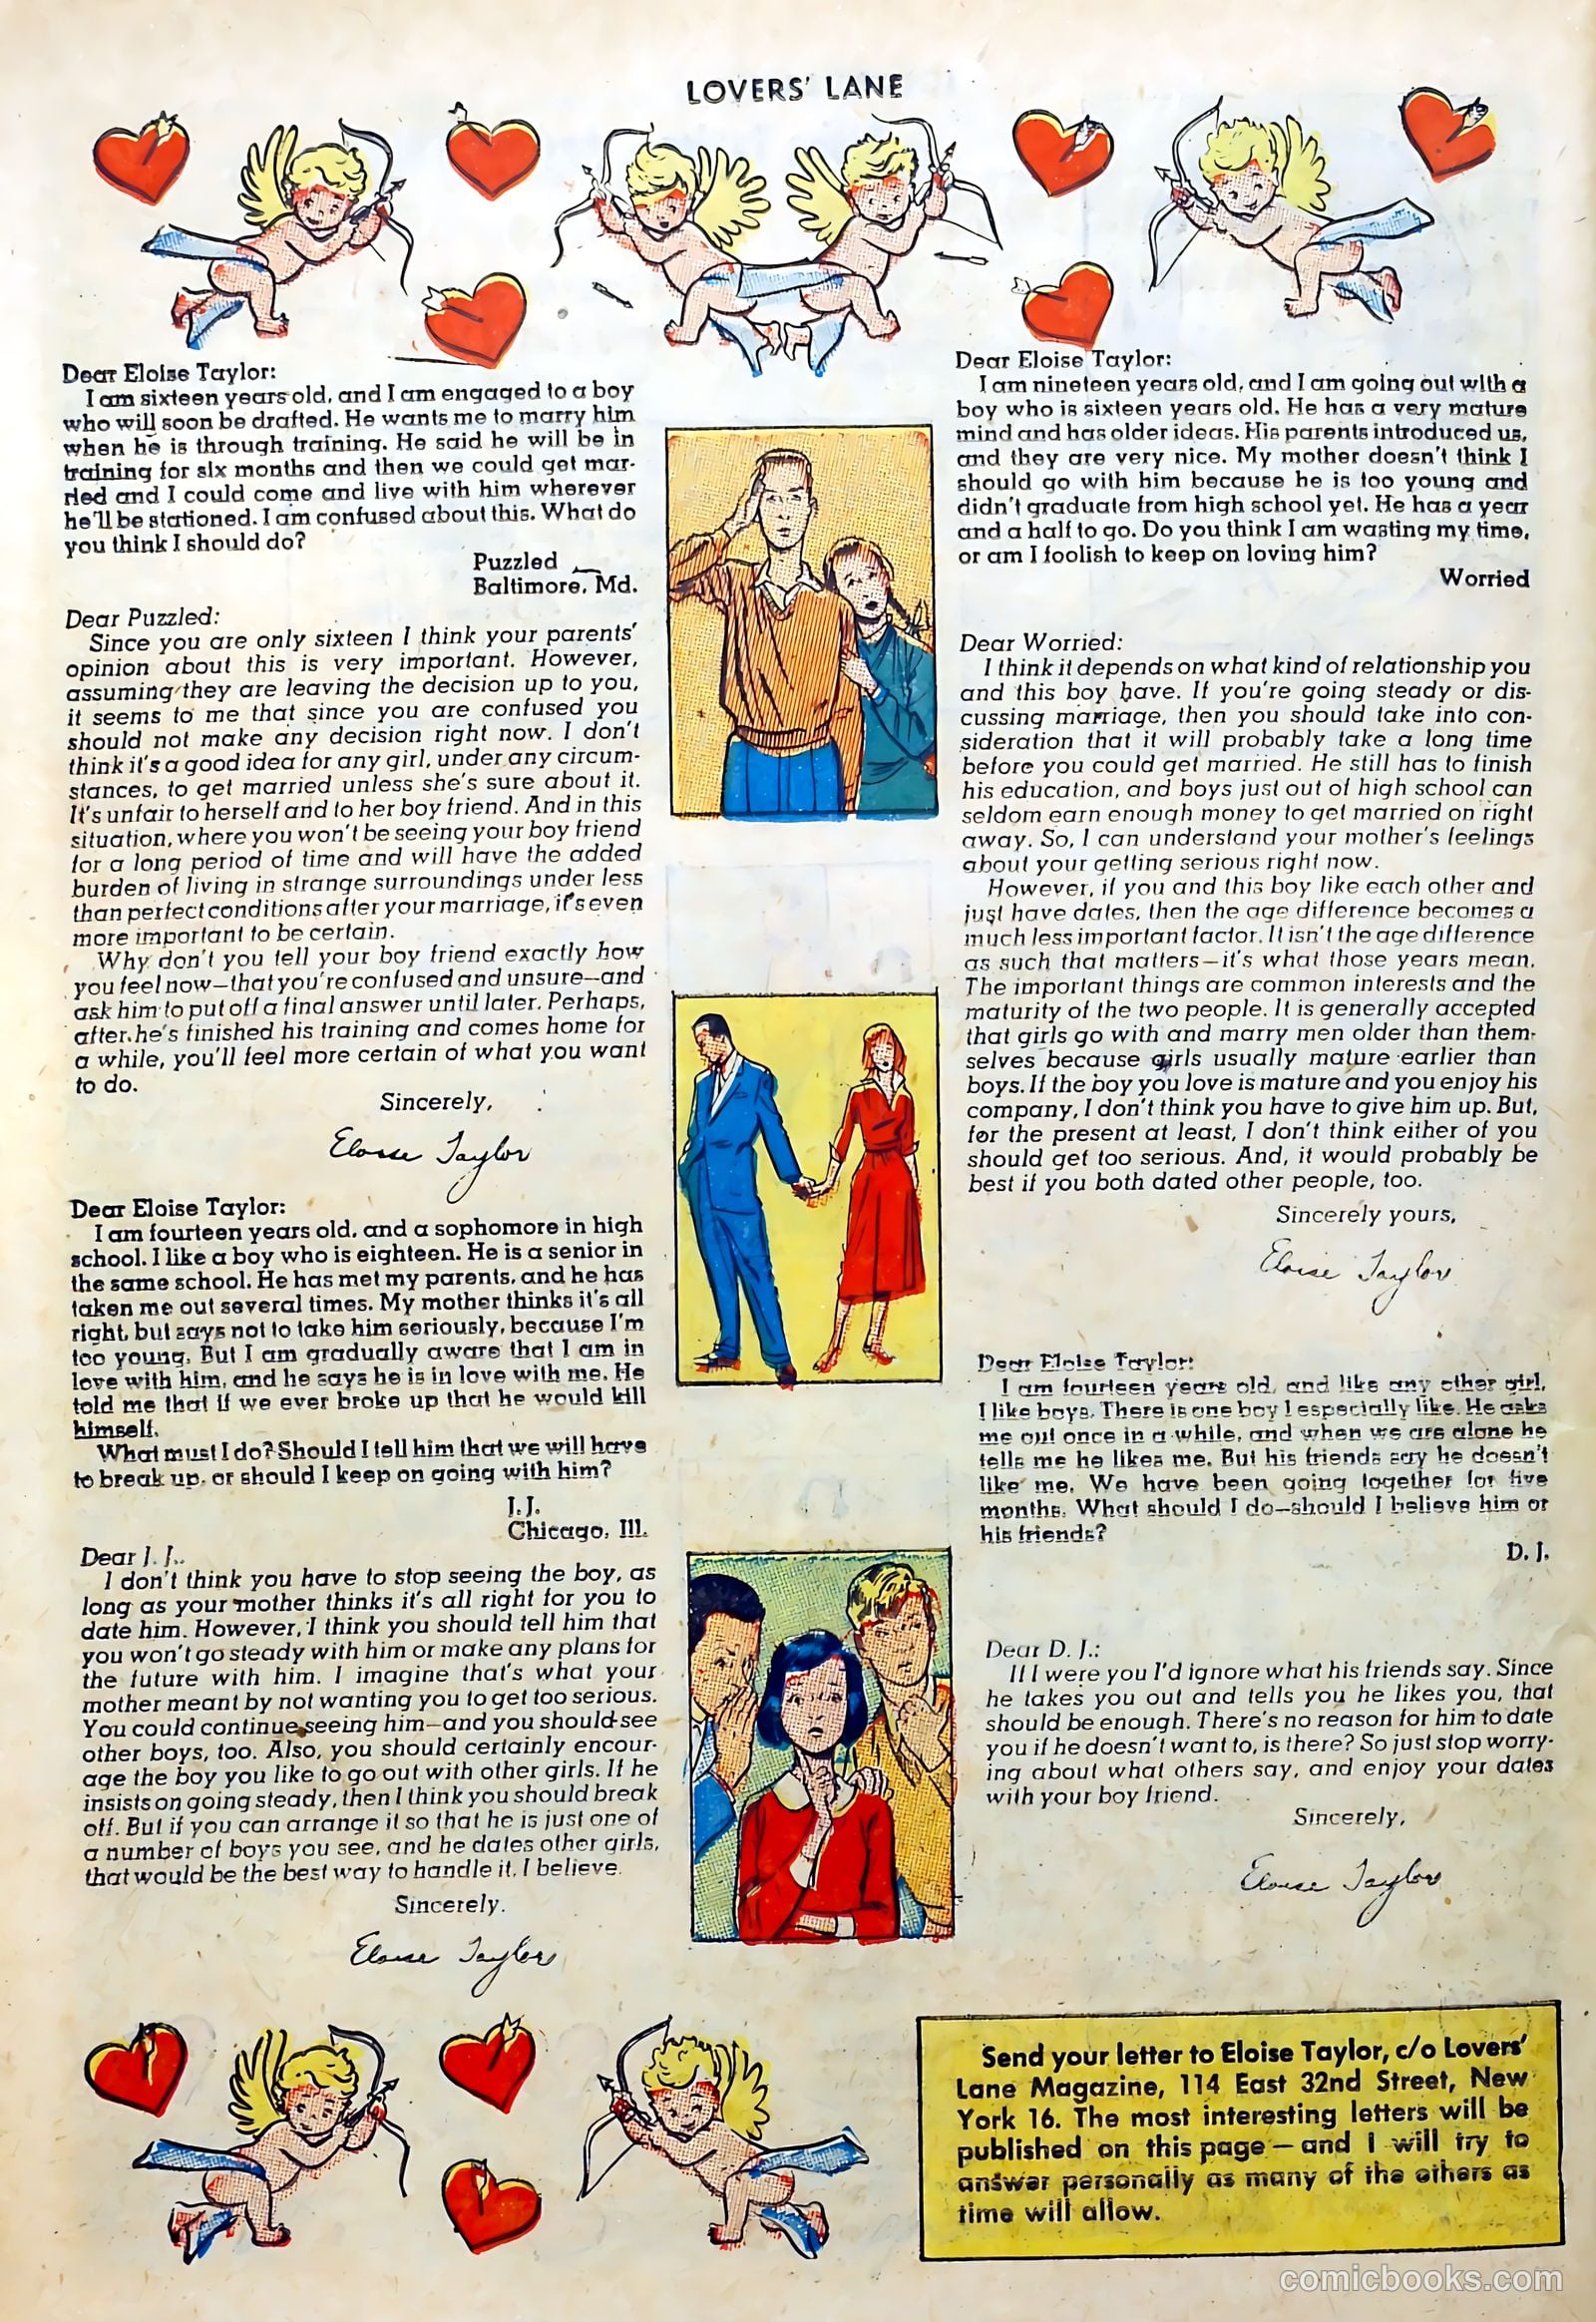 LOVERS' LANE
Dear Eloise Taylor:
I am sixteen years old, and I am engaged to a boy
who will soon be drafted. He wants me to marry him
when he is through training. He said he will be in
training for six months and then we could get mar-
ried and I could come and live with him wherever
he'll be stationed. I am confused about this. What do
you think I should do?
Puzzled
Baltimore, Md.
Dear Puzzled:
Since you are only sixteen I think your parents'
opinion about this is very important. However,
assuming they are leaving the decision up to you,
it seems to me that since you are confused you
should not make any decision right now. I don't
think it's a good idea for any girl, under any circum-
stances, to get married unless she's sure about it.
It's unfair to herself and to her boy friend. And in this
situation, where you won't be seeing your boy friend
for a long period of time and will have the added
burden of living in strange surroundings under less
than perfect conditions after your marriage, it's even
more important to be certain.
Why don't you tell your boy friend exactly how
you feel now—that you're confused and unsure—and
ask him to put off a final answer until later. Perhaps,
after he's finished his training and comes home for
a while, you'll feel more certain of what you want
to do.
Sincerely,
Eloise Taylor
Dear Eloise Taylor:
I am fourteen years old, and a sophomore in high
school. I like a boy who is eighteen. He is a senior in
the same school. He has met my parents, and he has
taken me out several times. My mother thinks it's all
right, but says not to take him seriously, because I'm
too young. But I am gradually aware that I am in
love with him, and he says he is in love with me. He
told me that if we ever broke up that he would kill
himself.
What must I do? Should I tell him that we will have
to break up, or should I keep on going with him?
J.J.
Chicago, Ill.
Dear J. J.:
I don't think you have to stop seeing the boy, as
long as your mother thinks it's all right for you to
date him. However, I think you should tell him that
you won't go steady with him or make any plans for
the future with him. I imagine that's what your
mother meant by not wanting you to get too serious.
You could continue seeing him—and you should see
other boys, too. Also, you should certainly encour-
age the boy you like to go out with other girls. If he
insists on going steady, then I think you should break
off. But if you can arrange it so that he is just one of
a number of boys you see, and he dates other girls,
that would be the best way to handle it, I believe.
Sincerely.
Eloise Taylor
Dear Eloise Taylor:
I am nineteen years old, and I am going out with a
boy who is sixteen years old. He has a very mature
mind and has older ideas. His parents introduced us,
and they are very nice. My mother doesn't think I
should go with him because he is too young and
didn't graduate from high school yet. He has a year
and a half to go. Do you think I am wasting my time,
or am I foolish to keep on loving him?
Worried
Dear Worried:
I think it depends on what kind of relationship you
and this boy have. If you're going steady or dis-
cussing marriage, then you should take into con-
sideration that it will probably take a long time
before you could get married. He still has to finish
his education, and boys just out of high school can
seldom earn enough money to get married on right
away. So, I can understand your mother's feelings
about your getting serious right now.
However, if you and this boy like each other and
just have dates, then the age difference becomes a
much less important factor. It isn't the age difference
as such that matters—it's what those years mean.
The important things are common interests and the
maturity of the two people. It is generally accepted
that girls go with and marry men older than them-
selves because girls usually mature earlier than
boys. If the boy you love is mature and you enjoy his
company, I don't think you have to give him up. But,
for the present at least, I don't think either of you
should get too serious. And, it would probably be
best if you both dated other people, too.
Sincerely yours,
Eloise Taylor
Dear Eloise Taylor:
I am fourteen years old, and like any other girl,
I like boys. There is one boy I especially like. He asks
me out once in a while, and when we are alone he
tells me he likes me. But his friends say he doesn't
like me. We have been going together for five
months. What should I do—should I believe him or
his friends?
D. J.
Dear D. J.:
If I were you I'd ignore what his friends say. Since
he takes you out and tells you he likes you, that
should be enough. There's no reason for him to date
you if he doesn't want to, is there? So just stop worry-
ing about what others say, and enjoy your dates
with your boy friend.
Sincerely,
Eloise Taylor
Send your letter to Eloise Taylor, c/o Lovers'
Lane Magazine, 114 East 32nd Street, New
York 16. The most interesting letters will be
published on this page — and I will try to
answer personally as many of the others as
time will allow.
comicbooks.com